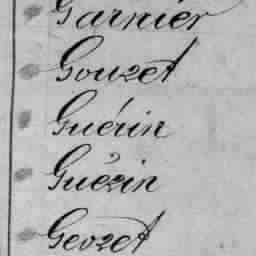 Garnier
Gouzet
Guérin
Guézin
Geozet